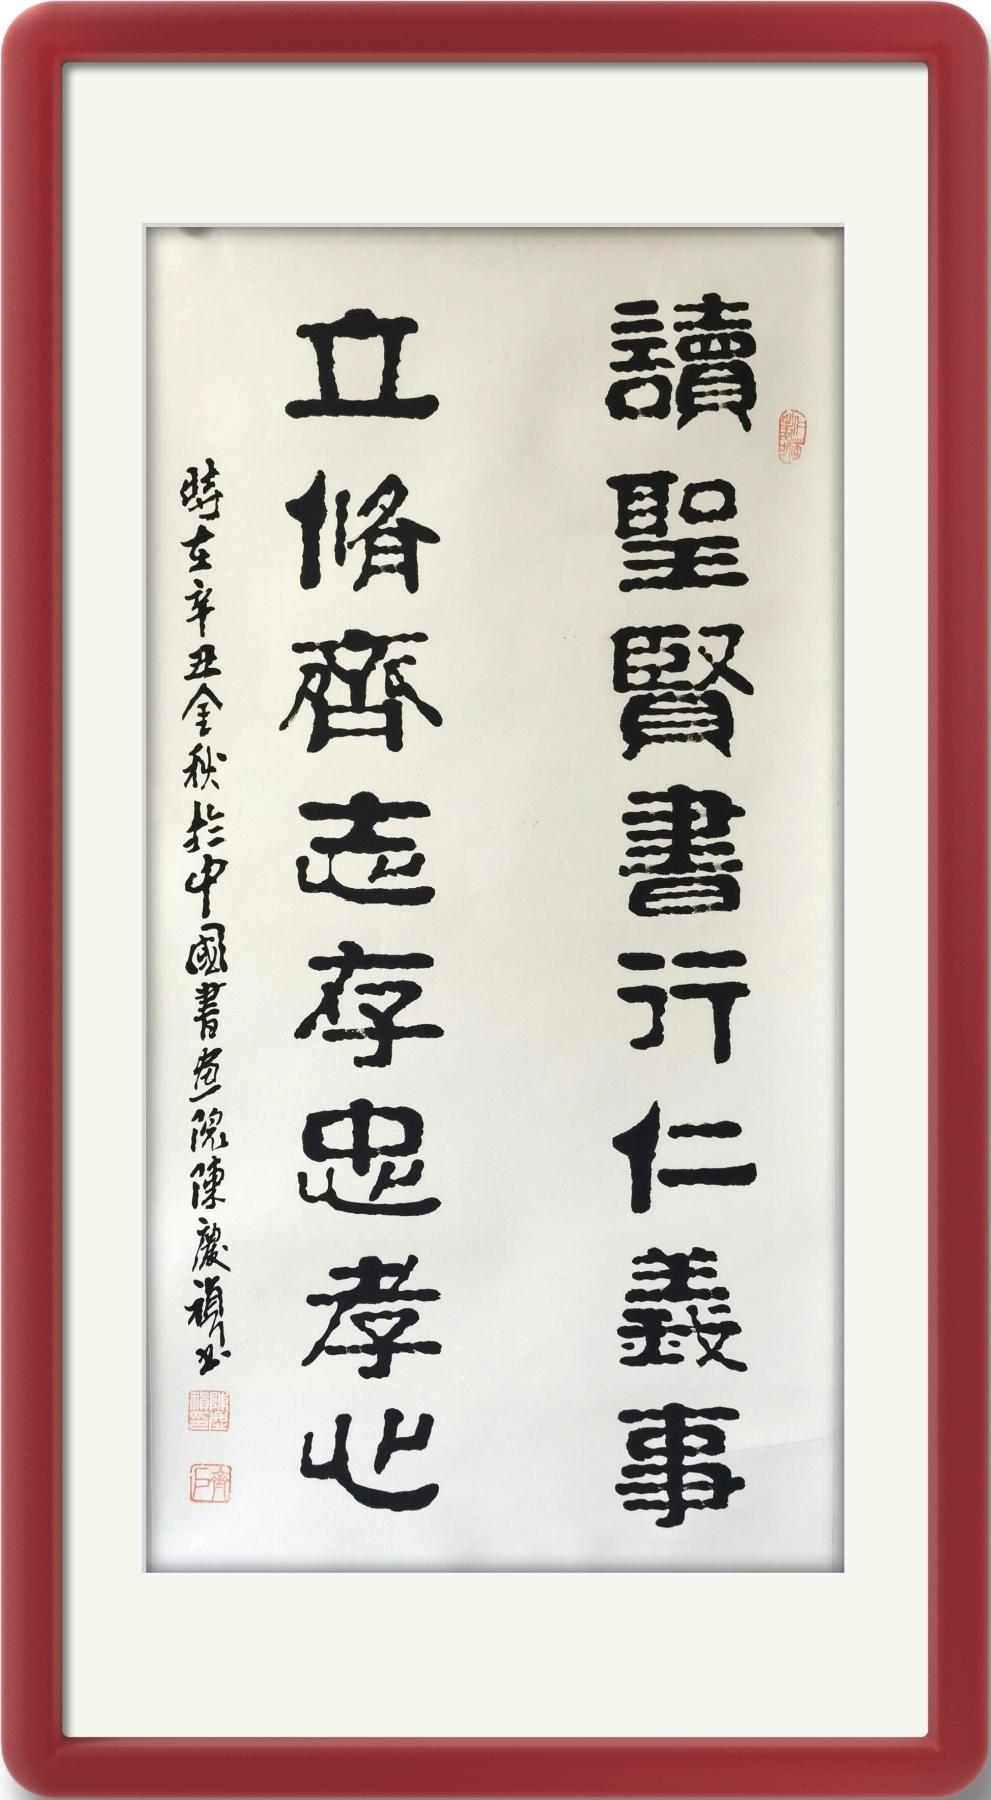 讀聖賢書行仁義事
立脩齊志存忠孝心
時在辛丑金秋於中國書畫院陳慶禎書